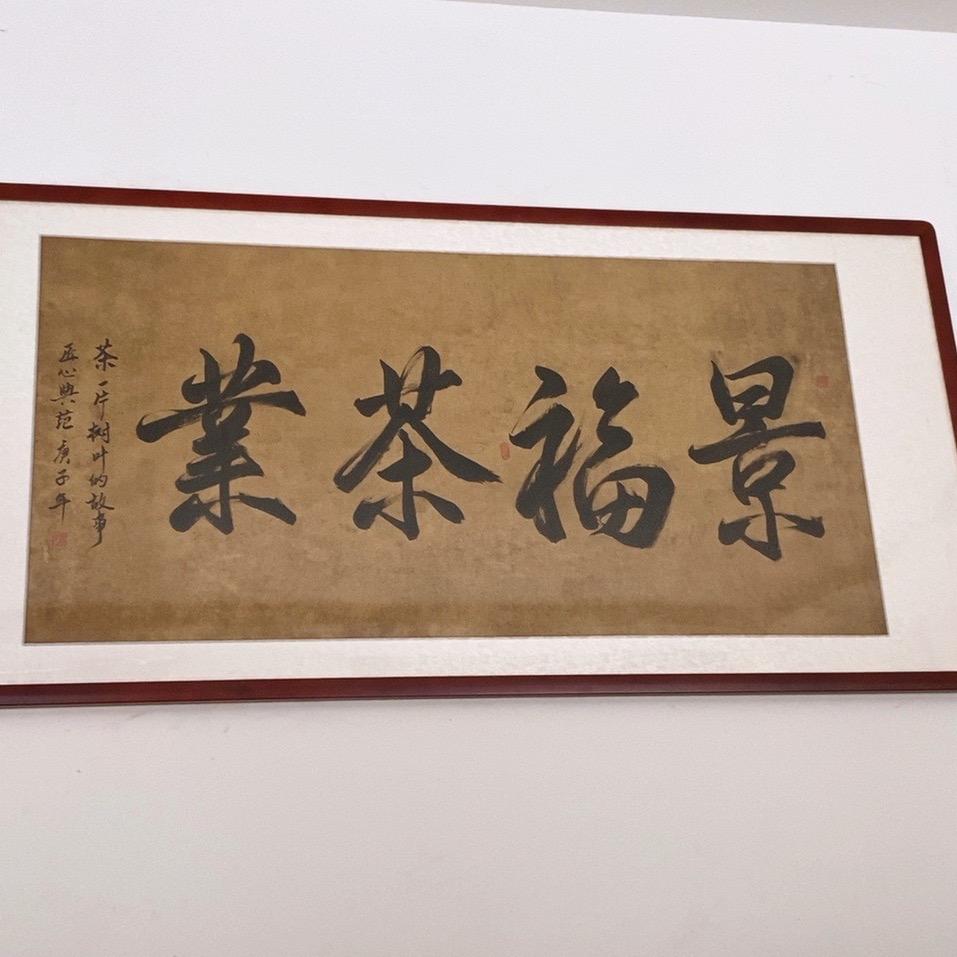 景福茶業
茶一片树叶的故事
匠心興范庚子年